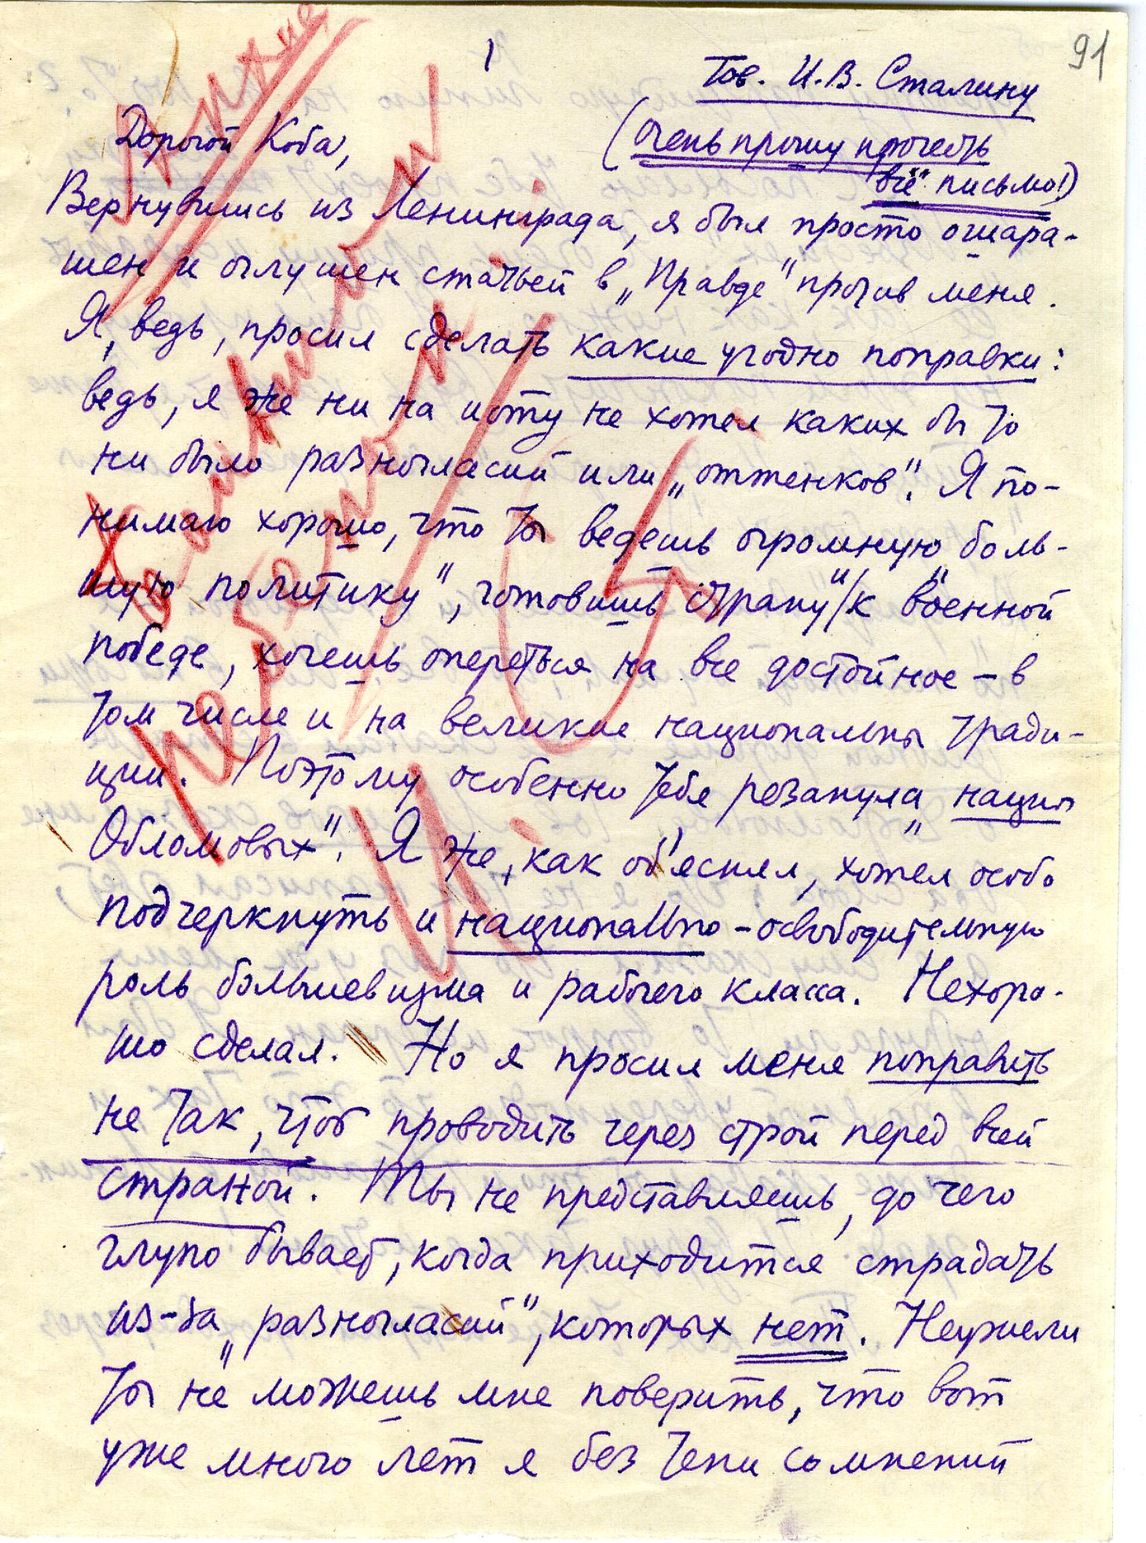 1
91
Тов. И.В. Сталину
Дорогой Коба,
(очень прошу прочесть
"все" письмо!)
Вернувшись из Ленинграда, я был просто ошара-
шен и оглушен статьей в „Правде" против меня.
Я, ведь, просил сделать какие угодно поправки:
ведь, я же ни на йоту не хотел каких бы то
ни было разногласий или „оттенков". Я по-
нимаю хорошо, что ты ведешь огромную боль-
шую политику", готовишь страну к военной
победе, хочешь опереться на все достойное – в
том числе и на великие национальны тради-
ции. Поэтому особенно тебя резанула „нация
Обломовых". Я же, как об'яснял, хотел особо
подчеркнуть и национально-освободительную
роль большевизма и рабочего класса. Нехоро-
шо сделал. Но я просил меня поправить
не так, чтоб проводить через строй перед всей
страной. Ты не представляешь, до чего
глупо бывает, когда приходится страдать
из-за „разногласий", которых нет. Неужели
ты не можешь мне поверить, что вот
уже много лет я без тени сомнений